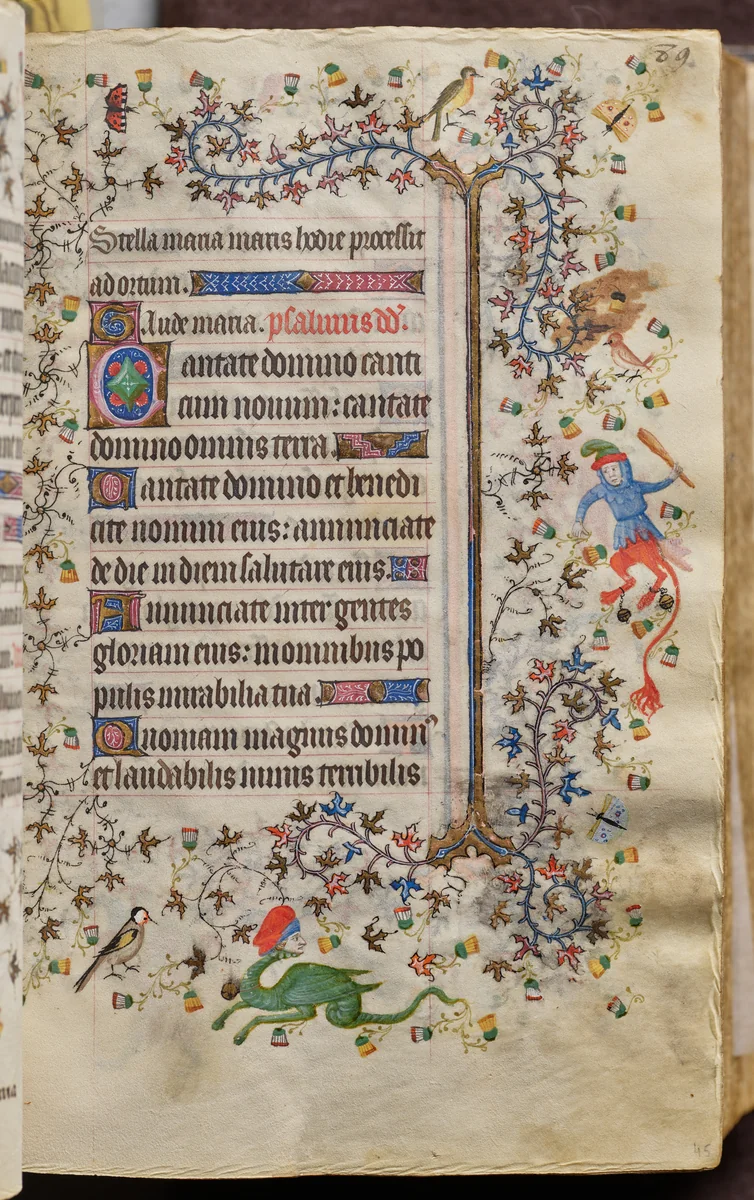 89
Stella maria maris hodie processit
ad ortum.
Gaude maria. psalmus dd'.
Cantate domino canti
cum nouum: cantate
domino omnis terra.
Cantate domino et benedi
cite nomini eius: annunciate
de die in diem salutare eius.
Annunciate inter gentes
gloriam eius: in omnibus po
pulis mirabilia tua.
Quoniam magnus dominꝰ
et laudabilis nimis terribilis
45